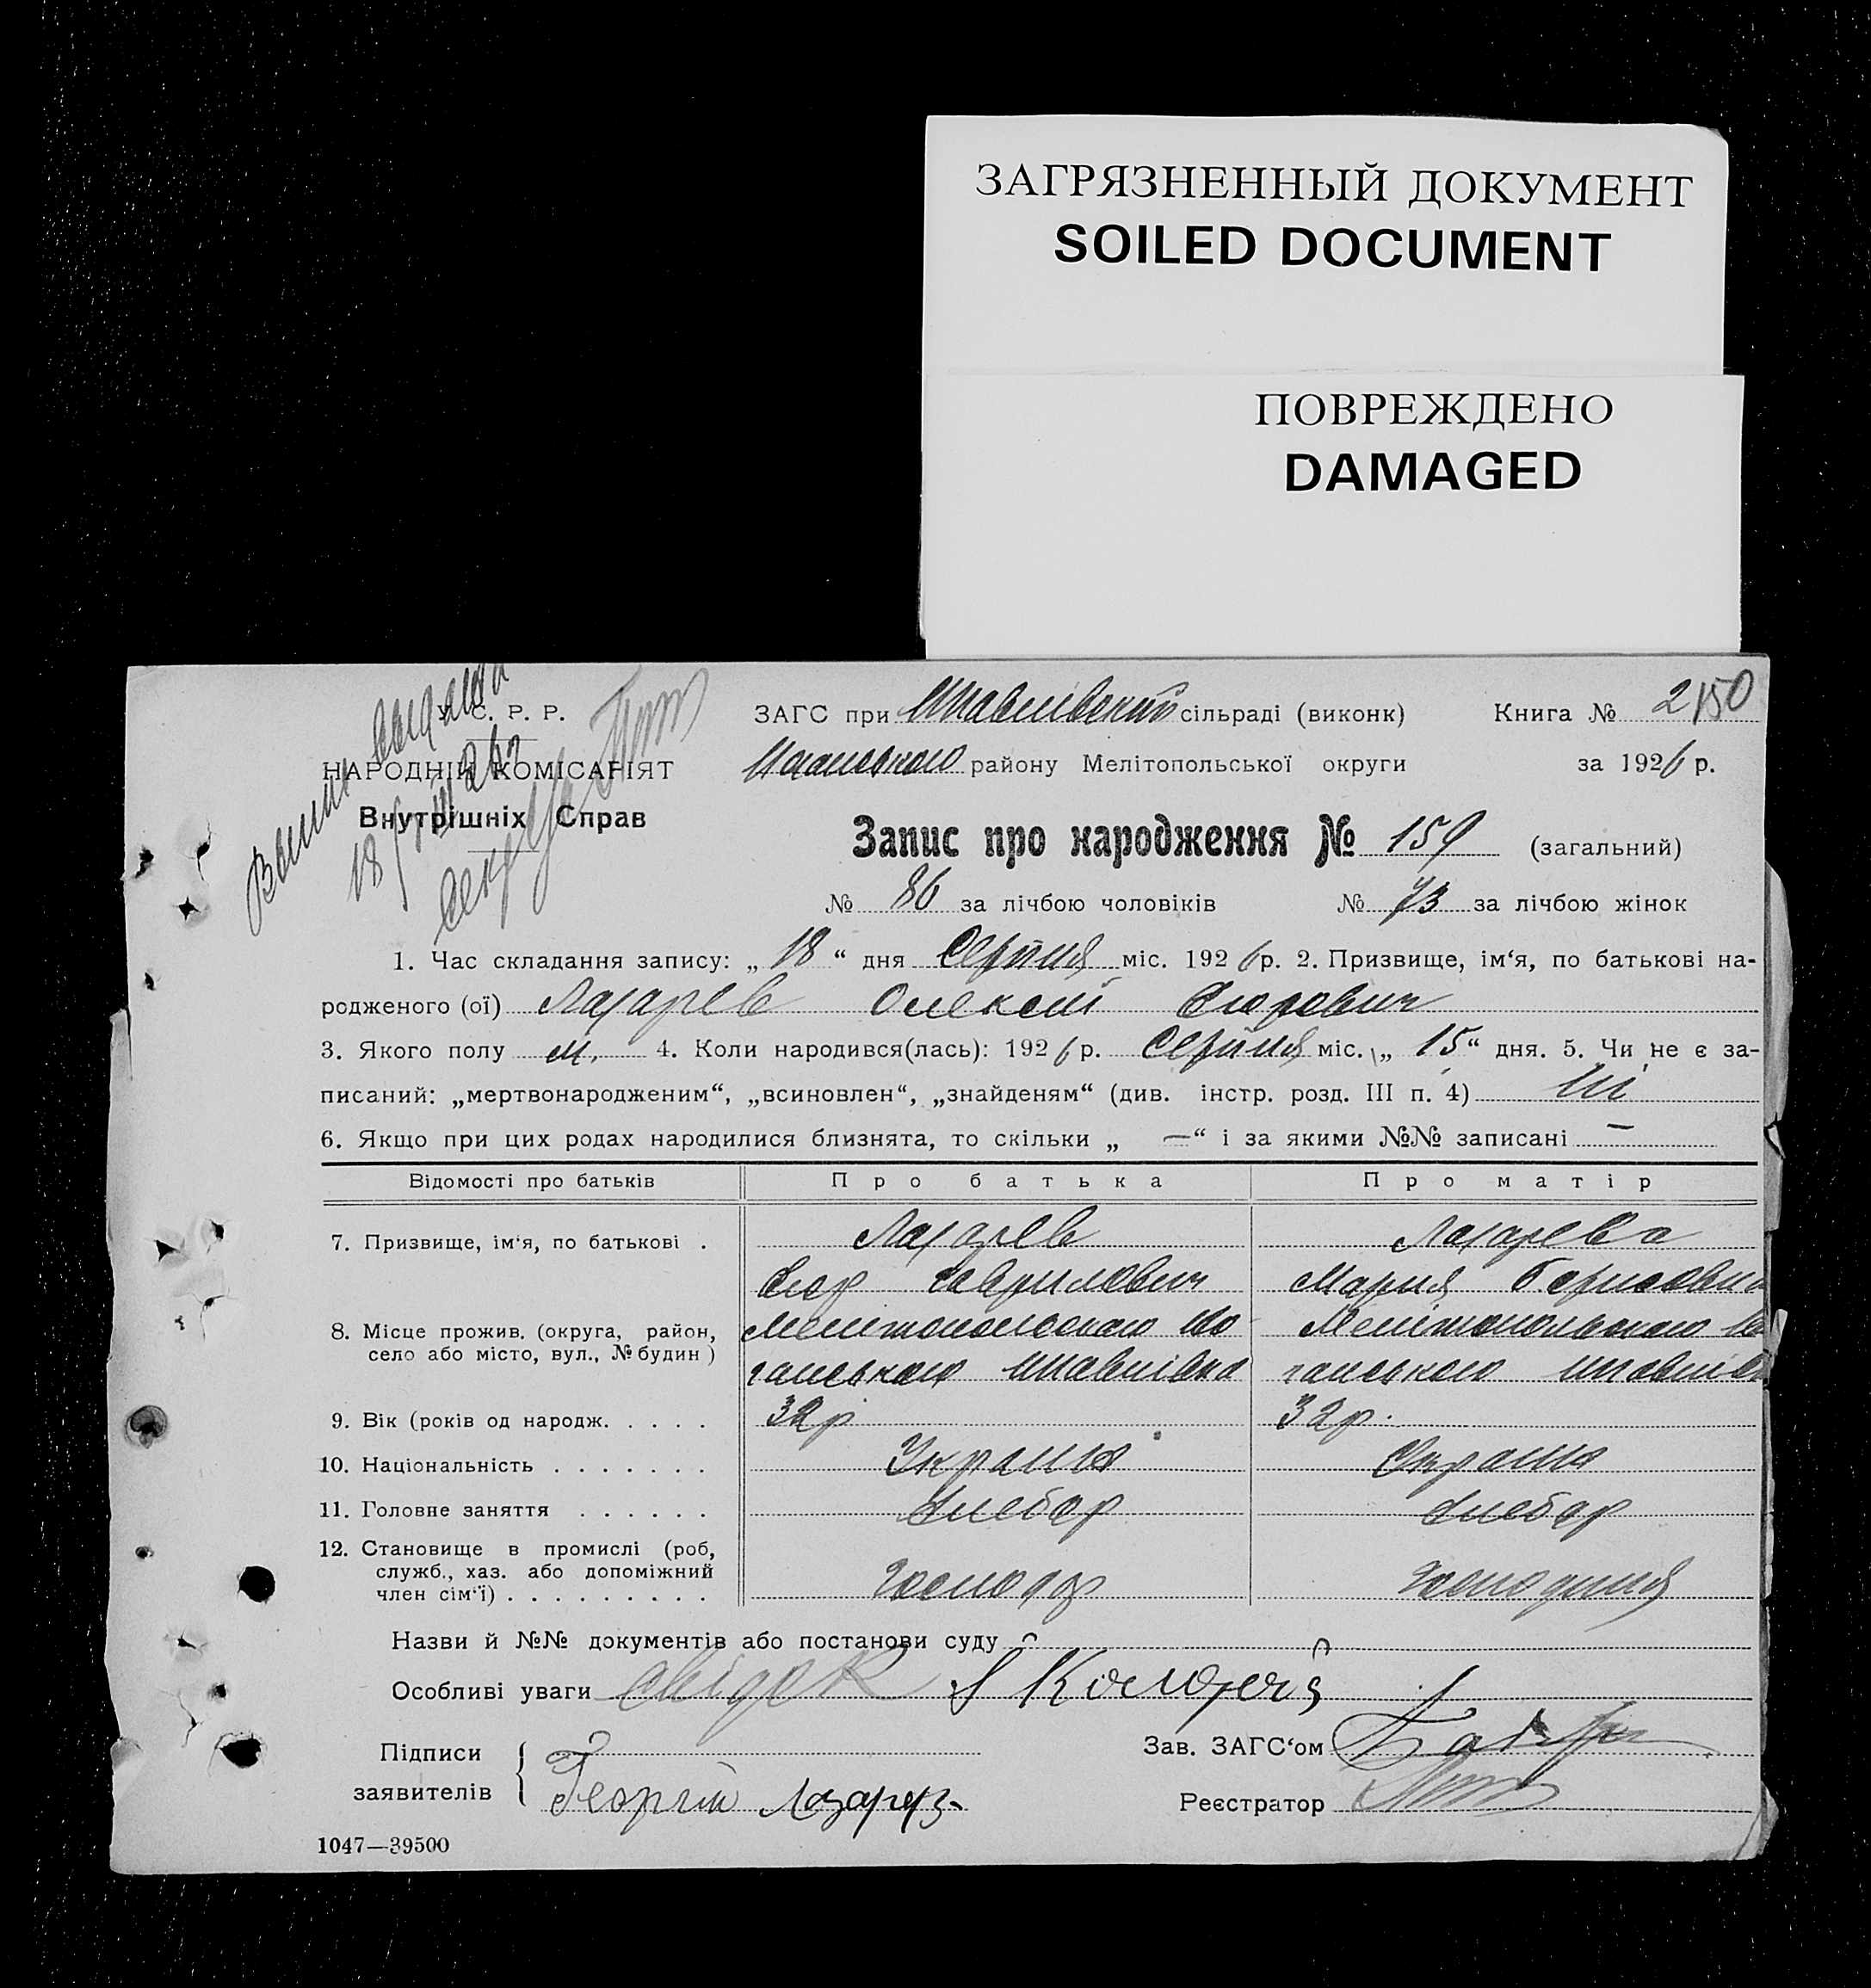 ЗАГРЯЗНЕННЫЙ ДОКУМЕНТ
SOILED DOCUMENT
ПОВРЕЖДЕНО
DAMAGED
У. С. Р. Р.
НАРОДНІЙ КОМІСАРІЯТ
Внутрішніх Справ
18
ЗАГС при сільраді (виконк) Книга № 2 150
району Мелітопольської округи за 1926 р.
Запис про народження № 159 (загальний)
№ 86 за лічбою чоловіків № 73 за лічбою жінок
1. Час складання запису: „ 18 “ дня Серпня міс. 1926 р. 2. Призвище, ім‘я, по батькові на-
родженого (ої) Лазарев Олексій Єгорович
3. Якого полу м. 4. Коли народився(лась): 1926 р. Серпня міс. „ 15 “ дня. 5. Чи не є за-
писаний: „мертвонародженим“, „всиновлен“, „знайденям“ (див. інстр. розд. III п. 4) Ні
6. Якщо при цих родах народилися близнята, то скільки „ — “ і за якими №№ записані —
Відомості про батьків Про батька Про матір
7. Призвище, ім‘я, по батькові . Лазарев Лазарева
Єгор Гаврилович Мария
8. Місце прожив. (округа, район,
село або місто, вул., № будин )
9. Вік (років од народж. . . . . 32р 32р.
10. Національність . . . . . . .
11. Головне заняття . . . . . . Хлебор Хлебор
12. Становище в промислі (роб,
служб., хаз. або допоміжний
член сім‘ї) . . . . . . . . . Господар господиня
Назви й №№ документів або постанови суду
Особливі уваги свідок
Підписи
заявителів
Георгій Лазарев
Зав. ЗАГС‘ом
Реєстратор
1047—39500